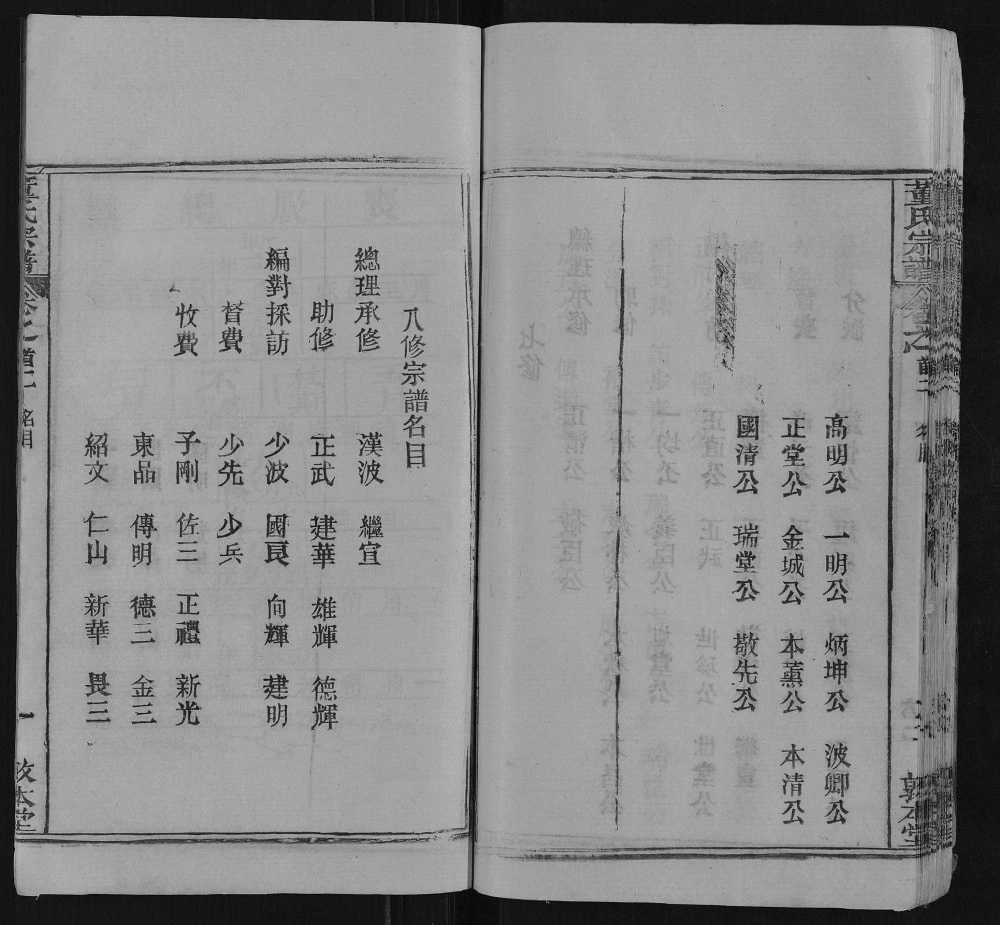 董氏宗譜
卷之首二
高明公 一明公 炳坤公 波卿公
正堂公 金城公 本薰公 本清公
國清公 瑞堂公 敬先公
八修宗譜名目
總理承修 漢波 繼宣
助修 正武 建華 雄輝 德輝
編對採訪 少波 國良 向輝 建明
督費 少先 少兵
收費 子剛 佐三 正禮 新光
東品 傳明 德三 金三
紹文 仁山 新華 畏三
董氏宗譜
卷之首二
名目
一
敦本堂